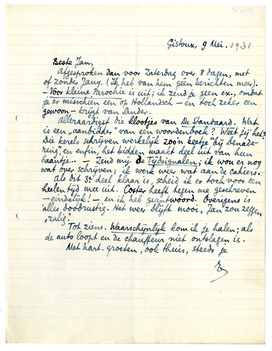 Gistoux, 9 Mei. 1931
Beste Jan,
Afgesproken dan voor Zaterdag over 8 dagen, met
of zonder Jang. (Ik heb van hem geen berichten meer).
— Voor kleine Parochie is uit; ik zend je geen ex., omdat
je er misschien een op Hollandsch — en toch zeker een
gewoon — krijgt van Sander.
Alleraardigst die klootjes van De Standaard. Wat
is een „aanbidder" van een woordenboek? Weet jij het?
Die kerels schrijven werkelijk zoo'n beetje bij benade-
ring; en enfin, het bidden, maakt deel uit van hem
baantje... — Zend mij de Tijdsignalen; ik wou er nog
wat over schrijven; ik werk weer wat aan de cahiers.
Als dit 3e deel klaar is, scheid ik er toch voor een
heelen tijd mee uit. Coster heeft degen me geschreven
— eindelijk! — en ik heb geantwoord. Overigens is
alles doodrustig. Het weer blijft mooi, Jan zou zeggen
„zalig".
Tot ziens. Waarschijnlijk kom ik je halen; als
de auto loopt en de chauffeur niet ontslagen is.
Met hart. groeten, ook thuis, steeds je